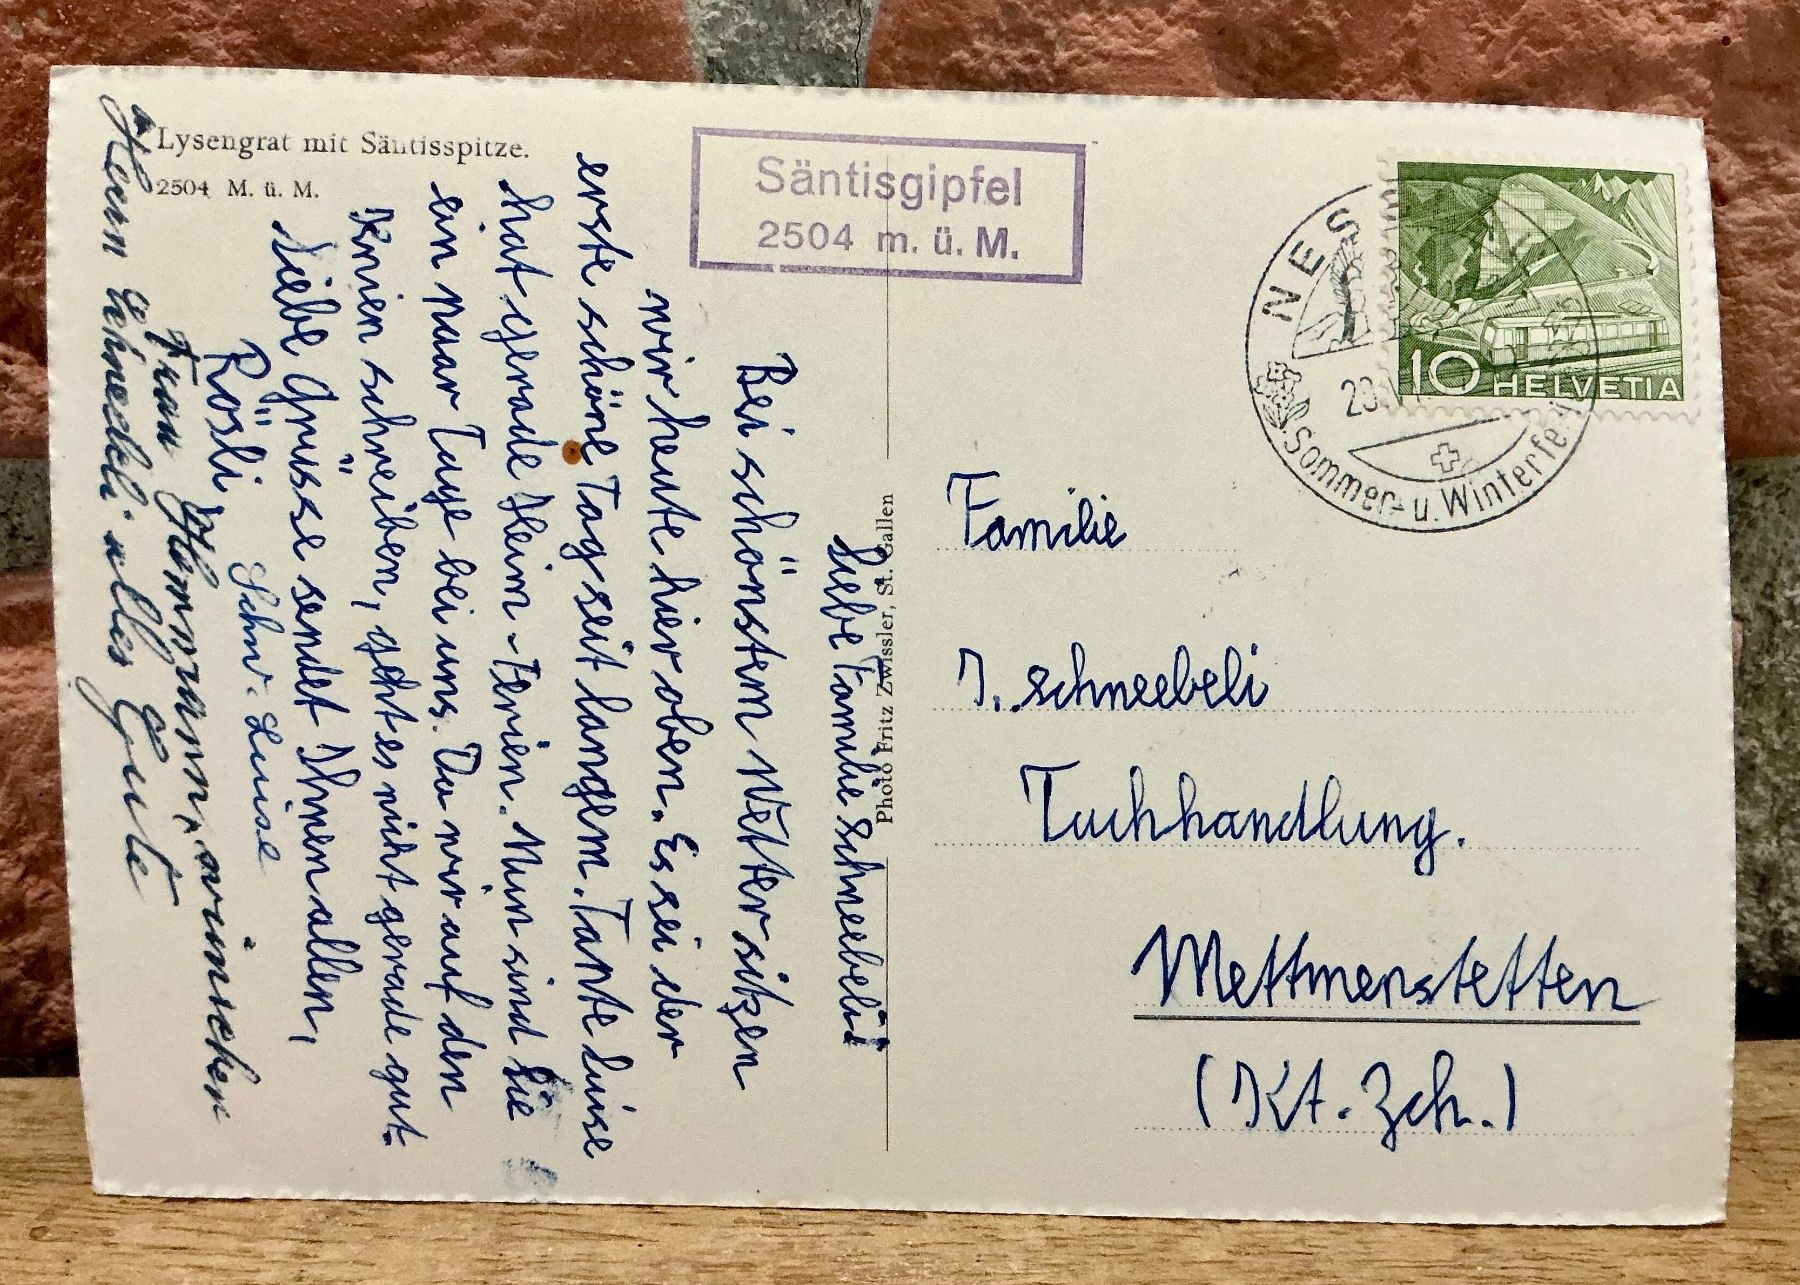 Lysengrat mit Säntisspitze.
2504 M. ü. M.
Säntisgipfel
2504 m. ü. M.
10 HELVETIA
NES
20.
Sommer- u. Winterfe
Photo Fritz Zwissler, St. Gallen
Liebe Familie Schneebeli!
Bei schönstem Wetter sitzen
wir heute hier oben. Es sei der
erste schöne Tag seit langem. Tante Luise
hat gerade Heim-Ferien. Nun sind sie
ein paar Tage bei uns. Da wir auf den
Knien schreiben, geht es nicht gerade gut.
Liebe Grüsse sendet Ihnen allen,
Rösli Schw. Luise
Frau Hermann, wünschen
Herrn Schneebeli alles Gute
Familie
J. Schneebeli
Tuchhandlung.
Mettmenstetten
(Kt. Zch.)